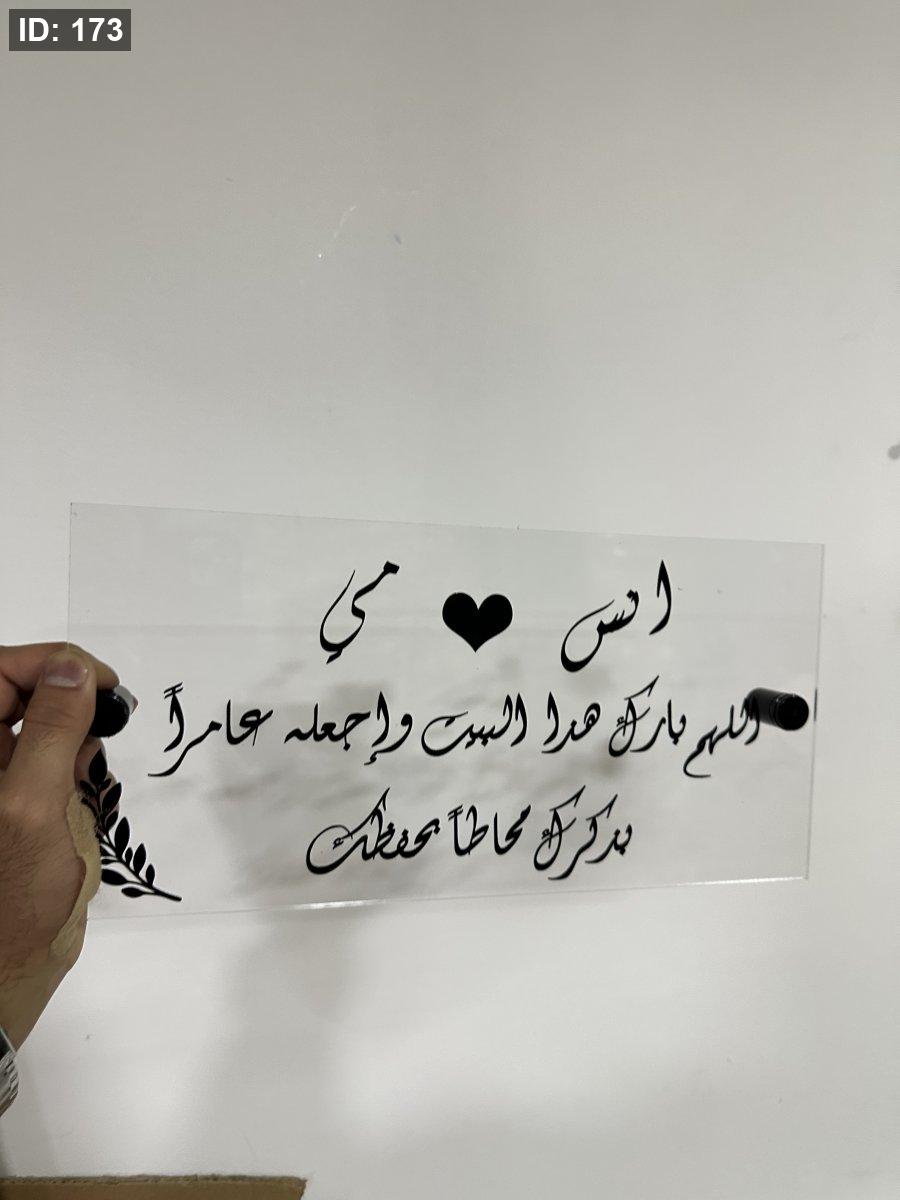 ID: 173
انس ♥ مي
اللهم بارك هدا البيت وإجعله عامراً
بدكرك محاطاً بحفظك